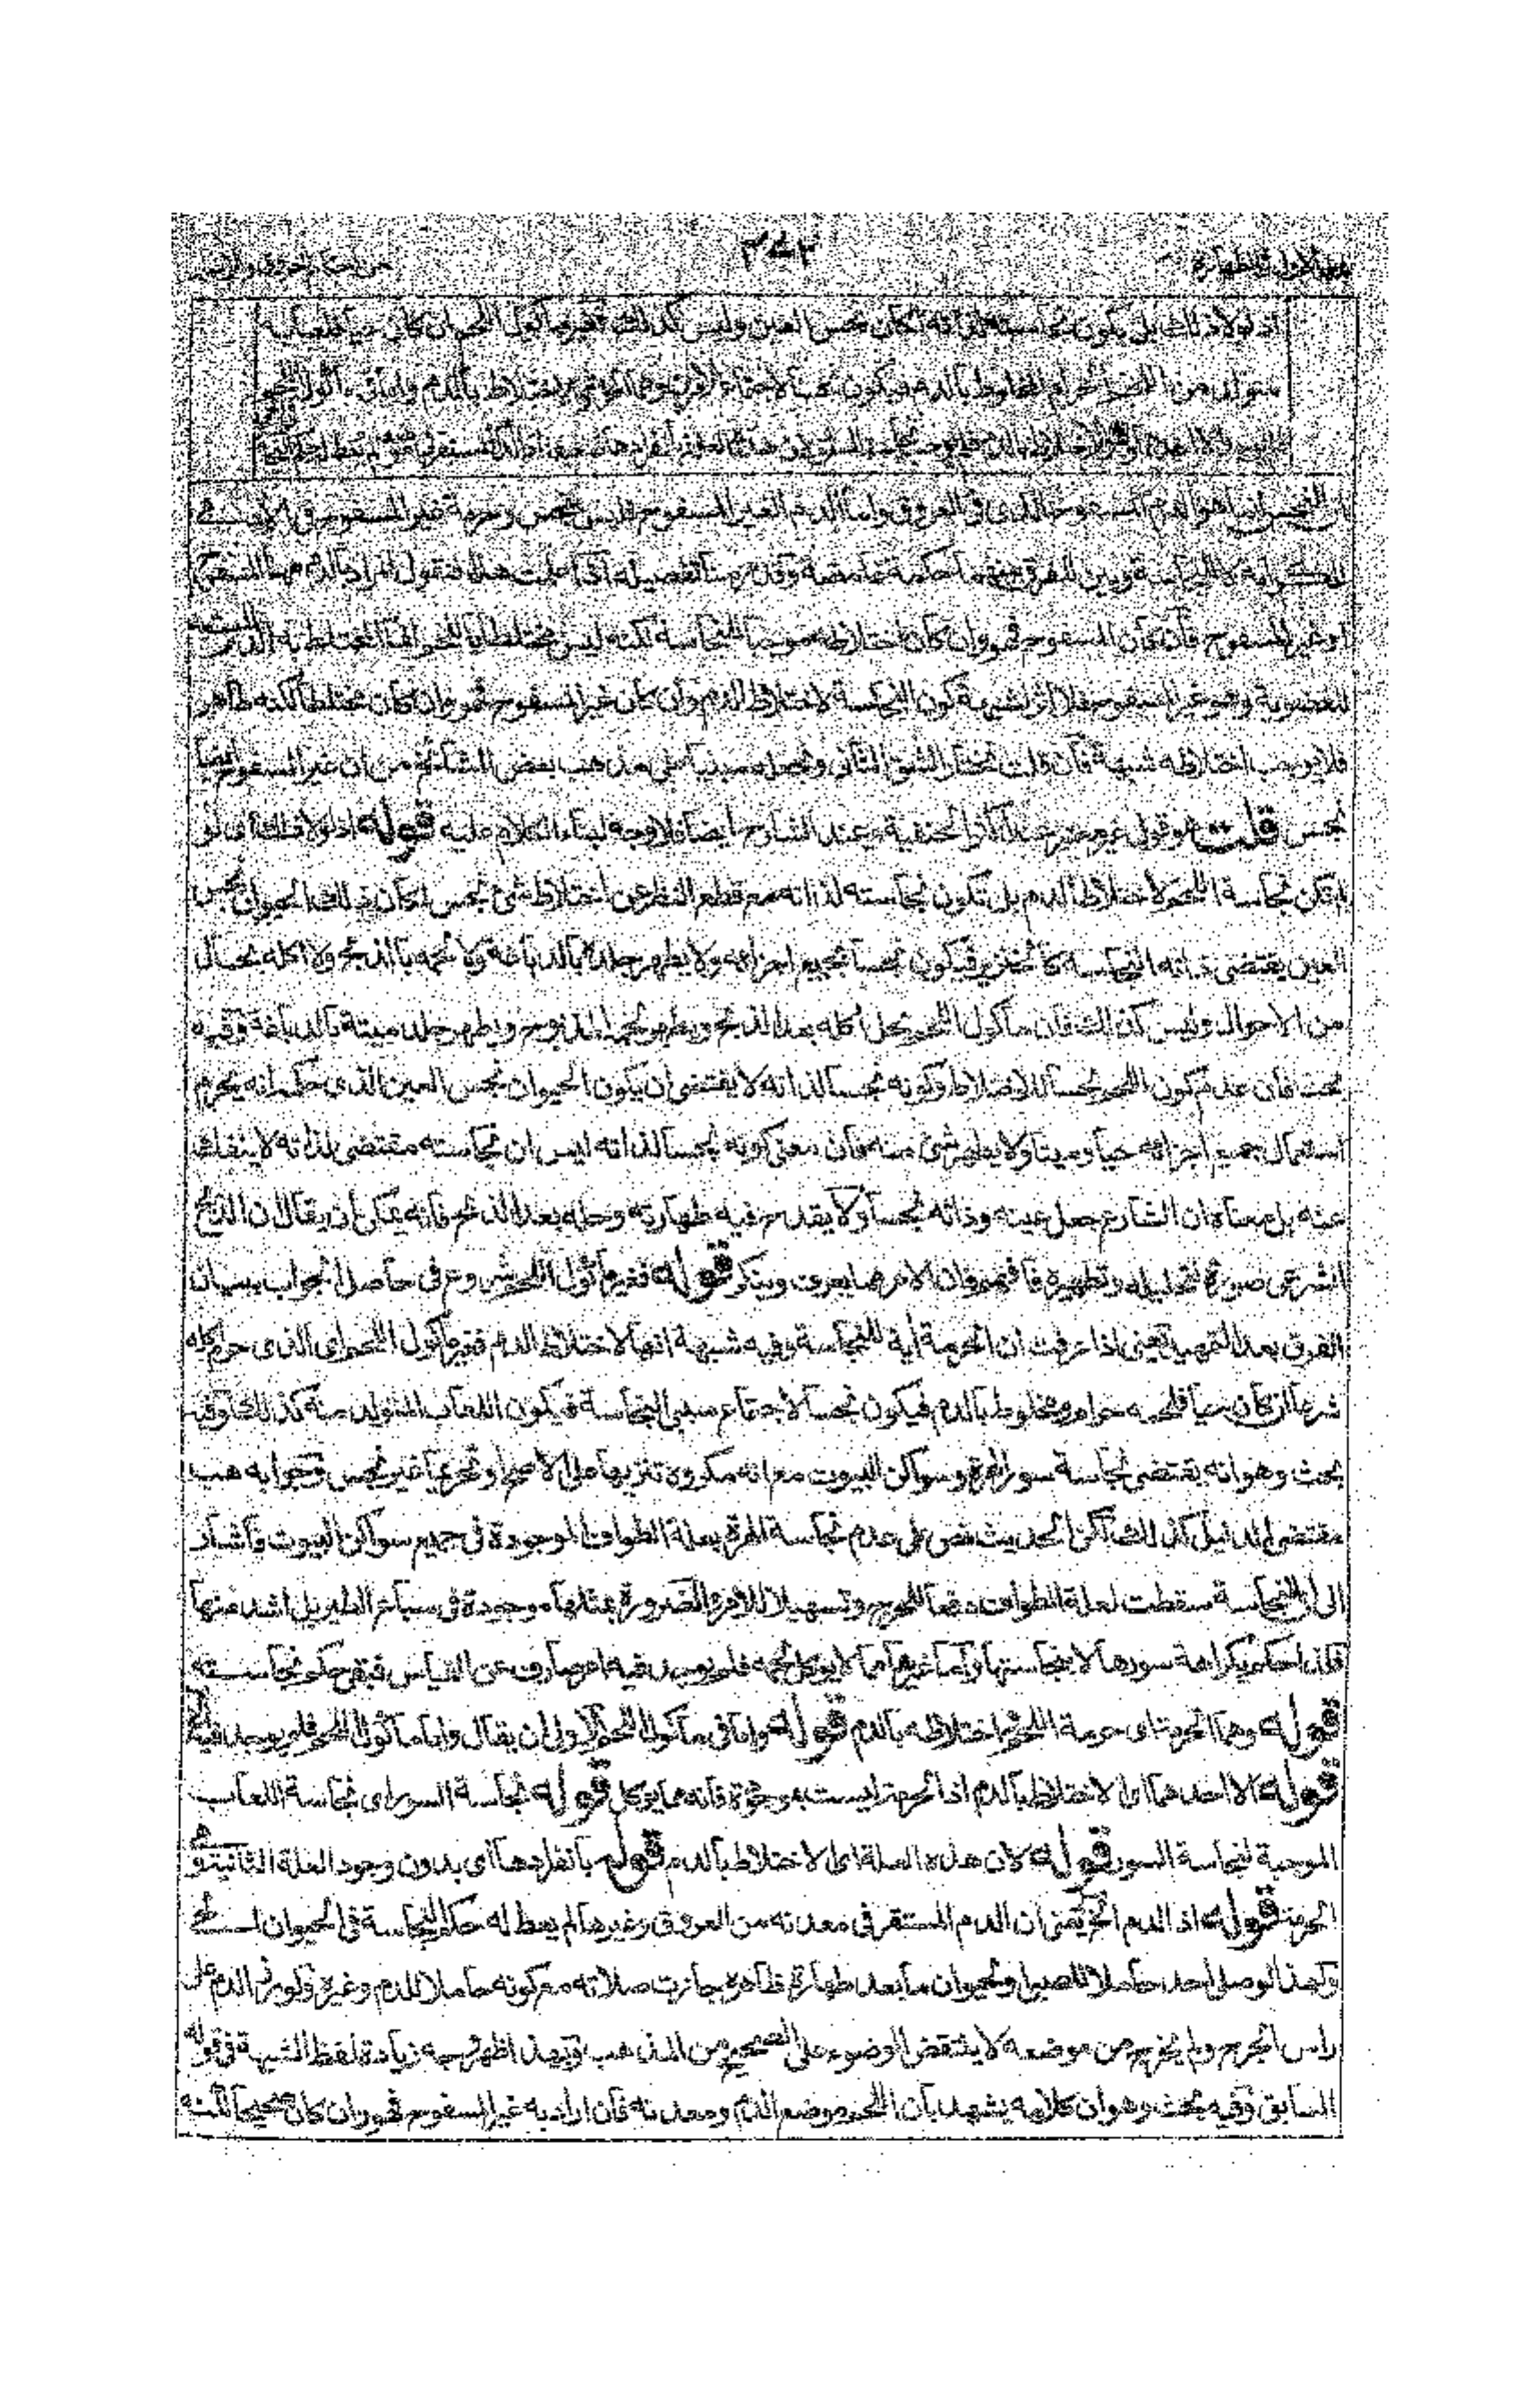 ٣٤٢
اذ لولا ذلك بل يكون نجاسته لذاته لكان نجس العين وليس كذلك فغير مأكول اللحم ان كان حيا فلعابه
متولد من اللحم الحرام المخلوط بالدم فيكون نجسا لاجتماع الامرين وهما الحرمة والاختلاط بالدم واما في مأكول اللحم
بان النجس انما هو الدم المسفوح الذي في العروق واما الدم الغير المسفوح فليس بنجس وحرمة غير المسفوح في الآدمي
للكرامة لا للنجاسة وبين الفرق بينهما حكمة غامضة وقد مر منا تفصيله اذا علمت هذا فنقول المراد بالدم ههنا المسفوح
او غير المسفوح فان كان المسفوح فهو وان كان اختلاطه موجبا للنجاسة لكنه ليس مختلطا باللحم
وهو غير المسفوح فلا اثر لشبهة كون النجاسة لاختلاط الدم وان كان غير المسفوح فهو وان كان مختلطا لكنه طاهر
فلا يوجب اختلاطه شبهة فان قلت نختار الشق الثاني ونجعله مبنيا على مذهب بعض المشائخ من ان غير المسفوح ايضا
نجس قلت هو قول غير معتبر عند اكثر الحنفية وعند الشارح ايضا فلا وجه لبناء الكلام عليه قوله اذ لولا ذلك اي لو
لم تكن نجاسة اللحم لاختلاط الدم بل تكون نجاسته لذاته مع قطع النظر عن اختلاط شئ نجس لكان ذلك الحيوان نجس
العين يقتضى ذاته النجاسة كالخنزير فيكون نجسا بجميع اجزائه ولا يطهر جلده بالدباغة ولا لحمه بالذبح ولا اكله بحال
من الاحوال وليس كذلك فان مأكول اللحم يحل اكله بعد الذبح ويطهر لحم المذبوح ويطهر جلد ميتة بالدباغة وفيه
بحث فان عدم كون اللحم نجسا للاختلاط وكونه نجسا لذاته لا يقتضى ان يكون الحيوان نجس العين الذى حكمه انه يحرم
استعمال جميع اجزائه حيا وميتا ولا يطهر شئ منه فان معنى كونه نجسا لذاته ليس ان نجاسته مقتضى لذاته لا ينفك
عنه بل معناه ان الشارع جعل عينه وذاته نجسا ولا يقدح فيه طهارته وحله بعد الذبح فانه يمكن ان يقال ان الذبح
الشرعى صورة لتحليله وتطهيره فافهم فان الامر مما يعرف وينكر قوله فغير مأكول اللحم شروع في حاصل الجواب ببيان
الفرق بعد التمهيد يعنى اذا عرفت ان الحرمة آية للنجاسة وفيه شبهة انها لاختلاط الدم فغير مأكول اللحم اى الذى حرم اكله
شرعا ان كان حيا فلحمه حرام ومخلوط بالدم فيكون نجسا لاجتماع سببى النجاسة فيكون اللعاب المتولد منه كذلك وفيه
بحث وهو انه يقتضى نجاسة سور الهرة وسواكن البيوت مع انه مكروه تنزيها على الاصح او تحريما غير نجس وجوابه هب
مقتضى الدليل كذلك لكن الحديث نص على عدم نجاسة الهرة بعلة الطواف الموجودة فى جميع سواكن البيوت واشار
الى ان النجاسة سقطت لعلة الطواف دفعا للحرج وتسهيلا للامر والضرورة بمثلها موجودة فى سباع الطير بل اشد منها
فلذا حكم بكراهة سورها لا بنجاستها واما غيرها مما لا يوكل لحمه فلم يوجد فيه امر صارف عن القياس فبقى حكم نجاسته
قوله وهما الحرمة اى حرمة اللحم واختلاطه بالدم قوله واما فى مأكول اللحم الاولى ان يقال واما مأكول اللحم فلم يوجد فيه
قوله الا احدهما اى الاختلاط بالدم اذ الحرمة ليست بموجودة فانه مما يوكل قوله نجاسة السور اى نجاسة اللعاب
الموجبة لنجاسة السور قوله لان هذه العلة اى الاختلاط بالدم قوله بانفرادها اى بدون وجود العلة الثانية وهى
الحرمة قوله اذ الدم الخ يعنى ان الدم المستقر فى معدنه من العروق وغيرها لم يعط له حكم النجاسة فى الحيوان الحى
ولهذا لو صلى احد حاملا للصبى او لحيوان ما بعد طهارة ظاهره جازت صلاته مع كونه حاملا للدم وغيره ولو برز الدم على
راس الجرح ولم يخرج من موضعه لا ينتقض الوضوء على الصحيح من المذهب وبهذا ظهر وجه زيادة لفظ الشبهة فى قوله
السابق وفيه بحث وهو ان كلامه يشهد بان اللحم موضع الدم ومعدنه فان اراد به غير المسفوح فهو وان كان صحيحا لكنه